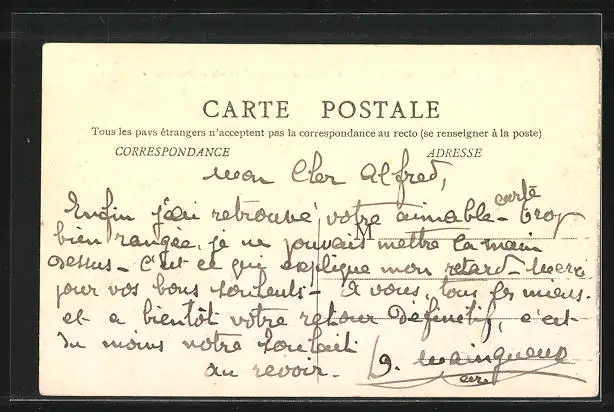 CARTE POSTALE
Tous les pays étrangers n'acceptent pas la correspondance au recto (se renseigner à la poste)
CORRESPONDANCE ADRESSE
Mon Cher Alfred,
Enfin j'ai retrouvé votre aimable carte trop
M
bien rangée, je ne pouvais mettre la main
dessus - C'est ce qui explique mon retard - Merci
pour vos bons souhaits - à vous, tous les miens.
et a bientôt votre retour définitif, c'est
du moins notre souhait
au revoir.